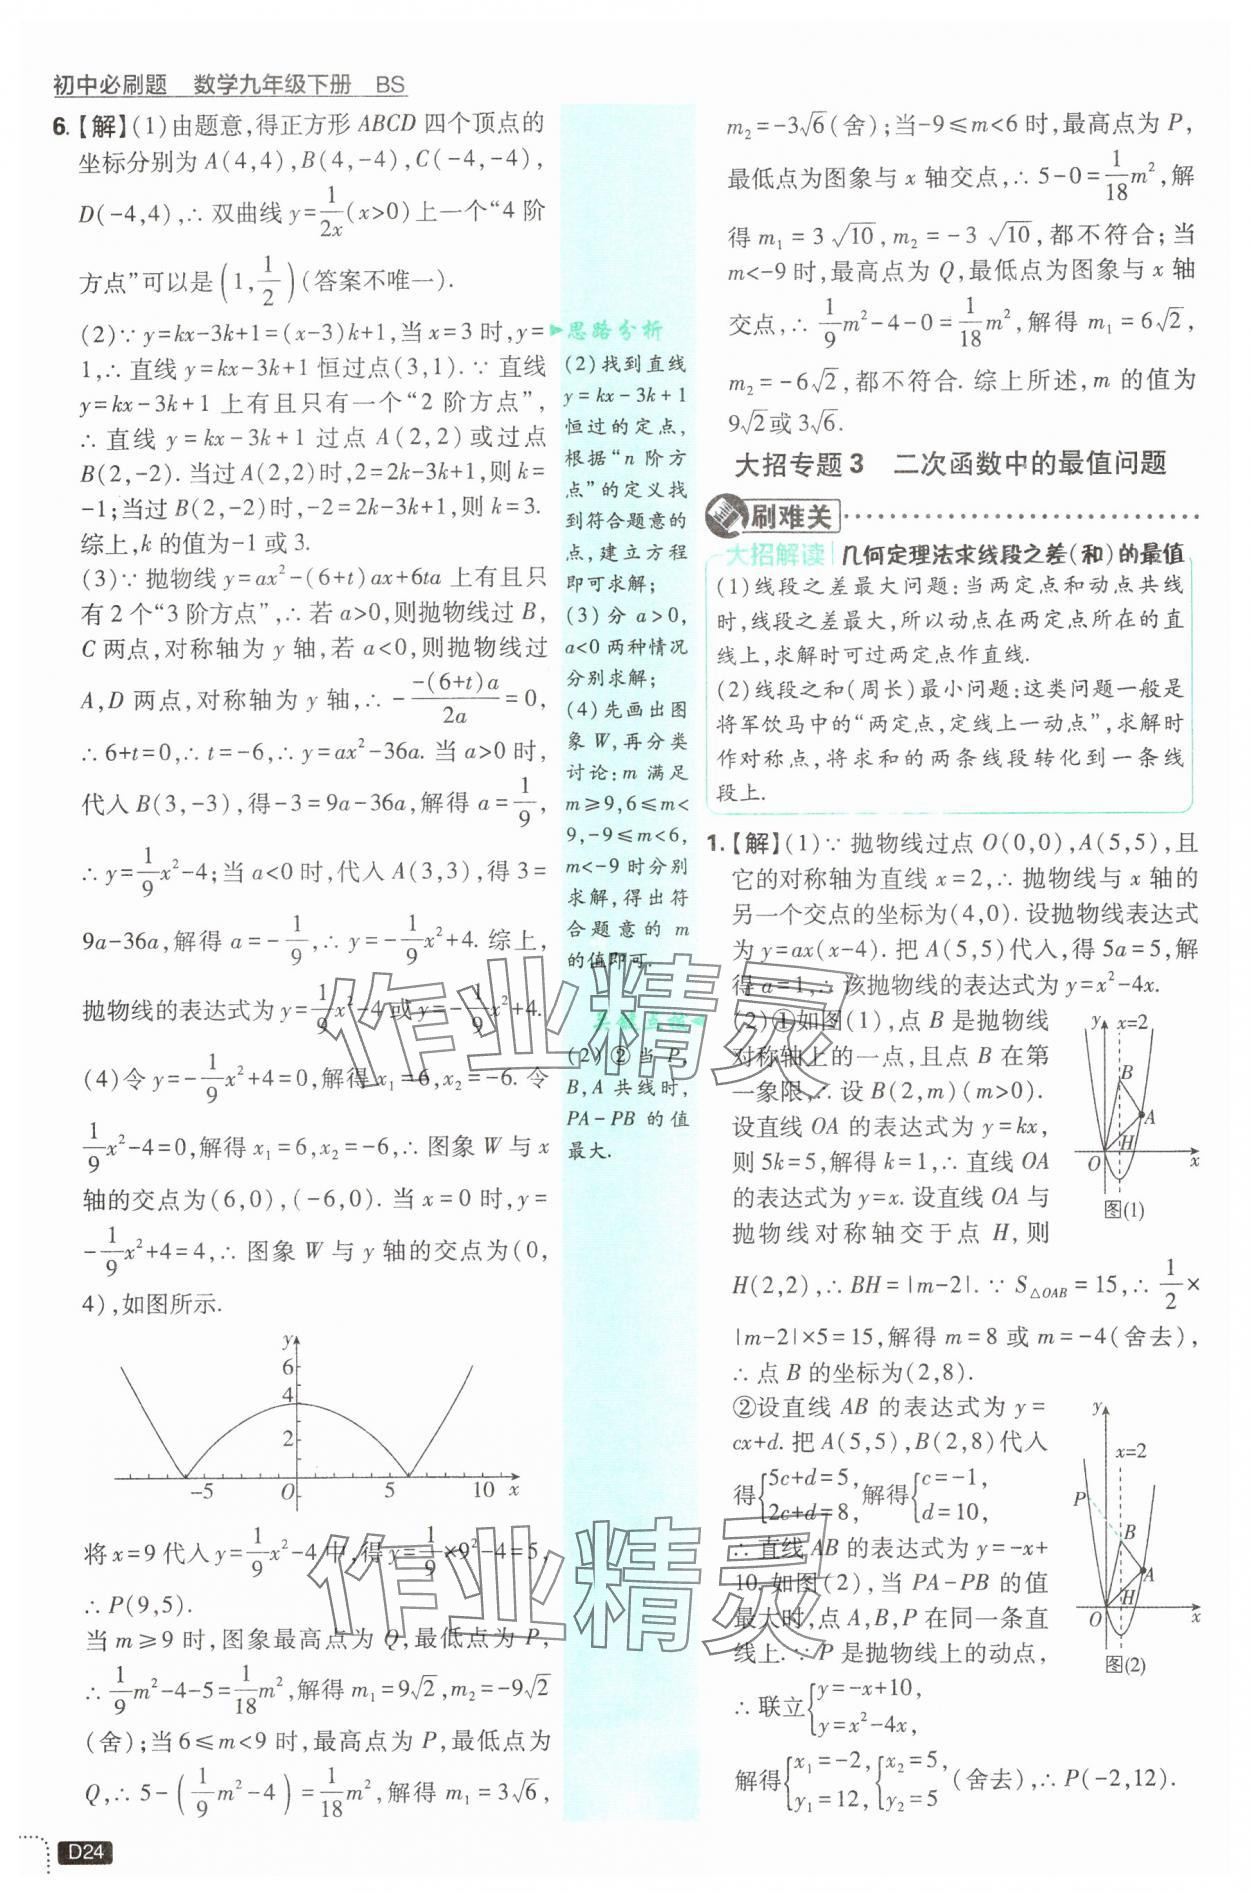 初中必刷题 数学九年级下册 BS
6.【解】(1)由题意,得正方形 ABCD 四个顶点的
坐标分别为 A(4,4),B(4,-4),C(-4,-4),
D(-4,4),∴ 双曲线 y=1/2x(x>0)上一个“4 阶
方点”可以是(1,1/2)(答案不唯一).
(2)∵ y=kx-3k+1=(x-3)k+1,当 x=3 时,y=
1,∴ 直线 y=kx-3k+1 恒过点(3,1).∵ 直线
y=kx-3k+1 上有且只有一个“2 阶方点”,
∴ 直线 y=kx-3k+1 过点 A(2,2)或过点
B(2,-2).当过A(2,2)时,2=2k-3k+1,则k=
-1;当过 B(2,-2)时,-2=2k-3k+1,则 k=3.
综上,k 的值为-1 或 3.
(3)∵ 抛物线 y=ax²-(6+t)ax+6ta 上有且只
有 2 个“3 阶方点”,∴ 若 a>0,则抛物线过 B,
C 两点,对称轴为 y 轴,若 a<0,则抛物线过
A,D 两点,对称轴为 y 轴,∴ - -(6+t)a/2a=0,
∴ 6+t=0,∴ t=-6,∴ y=ax²-36a. 当 a>0 时,
代入 B(3,-3),得-3=9a-36a,解得 a=1/9,
∴ y=1/9x²-4;当 a<0 时,代入 A(3,3),得 3=
9a-36a,解得 a=-1/9,∴ y=-1/9x²+4. 综上,
抛物线的表达式为 y=1/9x²-4 或 y=-1/9x²+4.
(4)令 y=-1/9x²+4=0,解得 x₁=6,x₂=-6. 令
1/9x²-4=0,解得 x₁=6,x₂=-6,∴ 图象 W 与 x
轴的交点为(6,0),(-6,0). 当 x=0 时,y=
-1/9x²+4=4,∴ 图象 W 与 y 轴的交点为(0,
4),如图所示.
y
6
4
2
-5 O 5 10 x
将 x=9 代入 y=1/9x²-4 中,得 y=1/9×9²-4=5,
∴ P(9,5).
当 m≥9 时,图象最高点为 Q,最低点为 P,
∴ 1/9m²-4-5=1/18m²,解得 m₁=9√2,m₂=-9√2
(舍);当 6≤m<9 时,最高点为 P,最低点为
Q,∴ 5-(1/9m²-4)=1/18m²,解得 m₁=3√6,
D24
思路分析
(2)找到直线
y=kx-3k+1
恒过的定点,
根据“n 阶方
点”的定义找
到符合题意的
点,建立方程
即可求解;
(3)分 a>0,
a<0 两种情况
分别求解;
(4)先画出图
象 W,再分类
讨论:m 满足
m≥9,6≤m<
9,-9≤m<6,
m<-9 时分别
求解,得出符
合题意的 m
的值即可.
(2)②当 P,
B,A 共线时,
PA-PB 的值
最大.
m₂=-3√6(舍);当-9≤m<6 时,最高点为 P,
最低点为图象与 x 轴交点,∴ 5-0=1/18m²,解
得 m₁=3√10,m₂=-3√10,都不符合;当
m<-9 时,最高点为 Q,最低点为图象与 x 轴
交点,∴ 1/9m²-4-0=1/18m²,解得 m₁=6√2,
m₂=-6√2,都不符合. 综上所述,m 的值为
9√2或3√6.
大招专题 3 二次函数中的最值问题
刷难关
大招解读 几何定理法求线段之差(和)的最值
(1)线段之差最大问题:当两定点和动点共线
时,线段之差最大,所以动点在两定点所在的直
线上,求解时可过两定点作直线.
(2)线段之和(周长)最小问题:这类问题一般是
将军饮马中的“两定点,定线上一动点”,求解时
作对称点,将求和的两条线段转化到一条线
段上.
1.【解】(1)∵ 抛物线过点 O(0,0),A(5,5),且
它的对称轴为直线 x=2,∴ 抛物线与 x 轴的
另一个交点的坐标为(4,0). 设抛物线表达式
为 y=ax(x-4). 把 A(5,5)代入,得 5a=5,解
得 a=1,∴ 该抛物线的表达式为 y=x²-4x.
(2)①如图(1),点 B 是抛物线
对称轴上的一点,且点 B 在第
一象限,∴ 设 B(2,m)(m>0).
设直线 OA 的表达式为 y=kx,
则 5k=5,解得 k=1,∴ 直线 OA
的表达式为 y=x. 设直线 OA 与
抛物线对称轴交于点 H,则
y x=2
B
A
H
O x
图(1)
H(2,2),∴ BH=|m-2|. ∵ S△OAB=15,∴ 1/2×
|m-2|×5=15,解得 m=8 或 m=-4(舍去),
∴ 点 B 的坐标为(2,8).
②设直线 AB 的表达式为 y=
cx+d. 把 A(5,5),B(2,8)代入
得{5c+d=5, 2c+d=8, 解得{c=-1, d=10,
∴ 直线 AB 的表达式为 y=-x+
10. 如图(2),当 PA-PB 的值
最大时,点 A,B,P 在同一条直
线上. ∵ P 是抛物线上的动点,
y
x=2
P
B
A
H
O x
图(2)
∴ 联立{y=-x+10, y=x²-4x,
解得{x₁=-2, y₁=12, {x₂=5, y₂=5 (舍去),∴ P(-2,12).
作业精灵
作业精灵